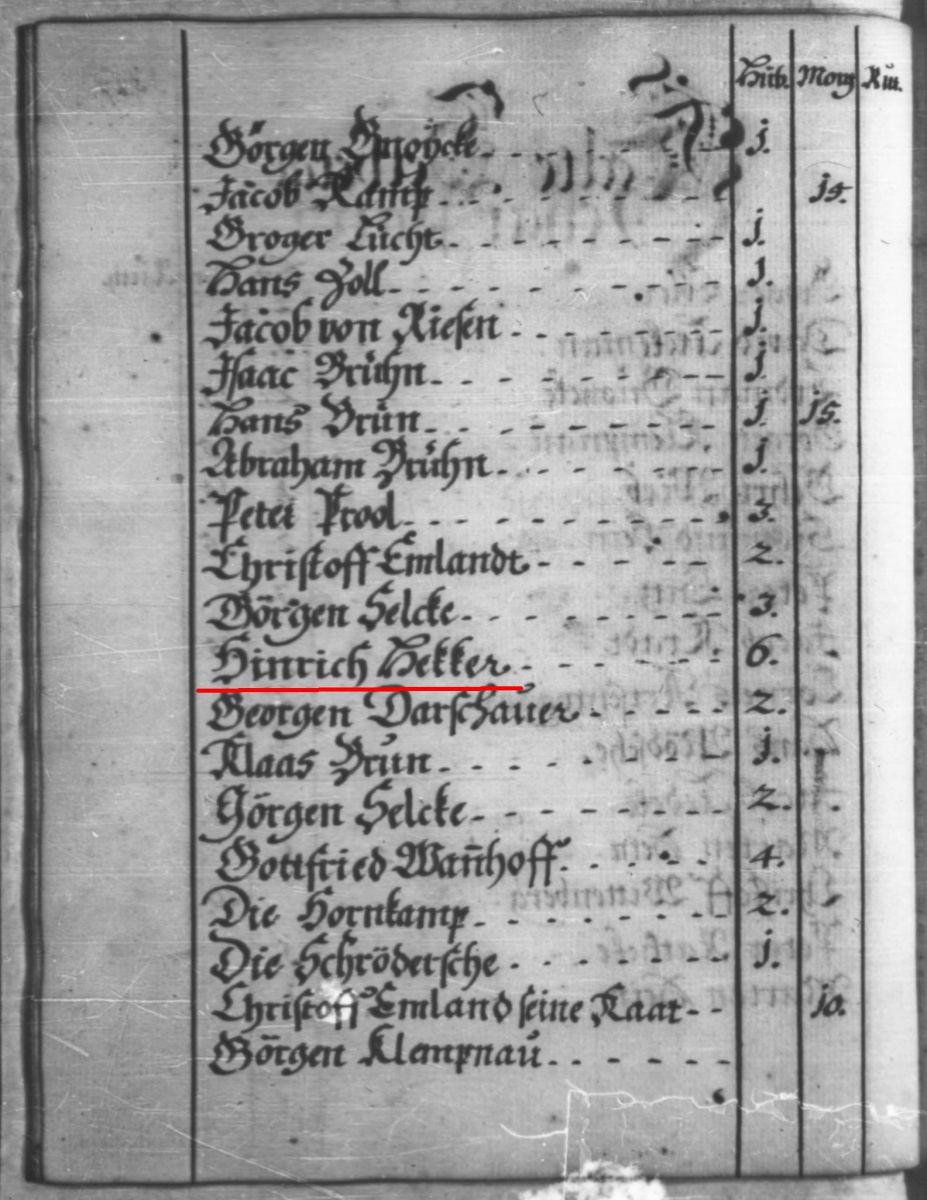 Hüb. Morg. Rut.
Görgen Gnoycke - - - - - - j.
Jacob Kamp - - - - - - 15.
Groger Lücht - - - - - - j.
Hans Zoll - - - - - - j.
Jacob von Riesen - - - - - - j.
Isaac Brühn - - - - - - j.
Hans Brün - - - - - - j. 15.
Abraham Brühn - - - - - - j.
Peter Prool - - - - - - 3.
Christoff Emlandt - - - - - 2.
Görgen Selcke - - - - - - 3.
Hinrich Hekker - - - - - 6.
Georgen Darschauer - - - - 2.
Klaas Brun - - - - - - j.
Görgen Selcke - - - - - - 2.
Gottfried Wan̄hoff - - - - 4.
Die Hornkamp - - - - - - 2.
Die Schrödersche - - - - - j.
Christoff Emland seine Kaat - - 10.
Görgen Klempnau - - - - - -